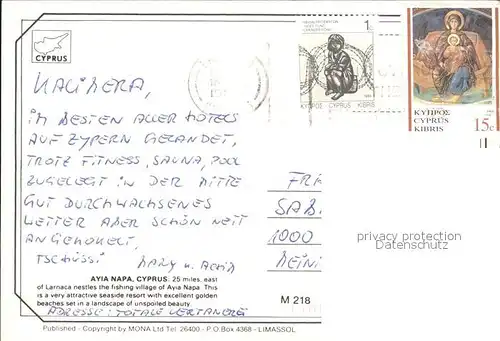 CYPRUS
KALIMERA,
IM BESTEN ALLER HOTELS
AUF ZYPERN GELANDET,
TROTZ FITNESS, SAUNA, POOL
ZUGELEGT IN DER MITTE
GUT DURCHWACHSENES
WETTER ABER SCHÖN
TSCHÜSSI
MARY u.
AYIA NAPA, CYPRUS: 25 miles, east
of Larnaca nestles the fishing village of Ayia Napa. This
is a very attractive seaside resort with excellent golden
beaches set in a landscape of unspoiled beauty.
ADRESSE: TOTALE
Published - Copyright by MONA Ltd Tel. 26400 - P.O.Box 4368 - LIMASSOL
M 218
1c
ΚΥΠΡΟΣ CYPRUS KIBRIS
ΚΥΠΡΟΣ
CYPRUS
KIBRIS
15c
FR
SAB
1000
privacy protection
Datenschutz